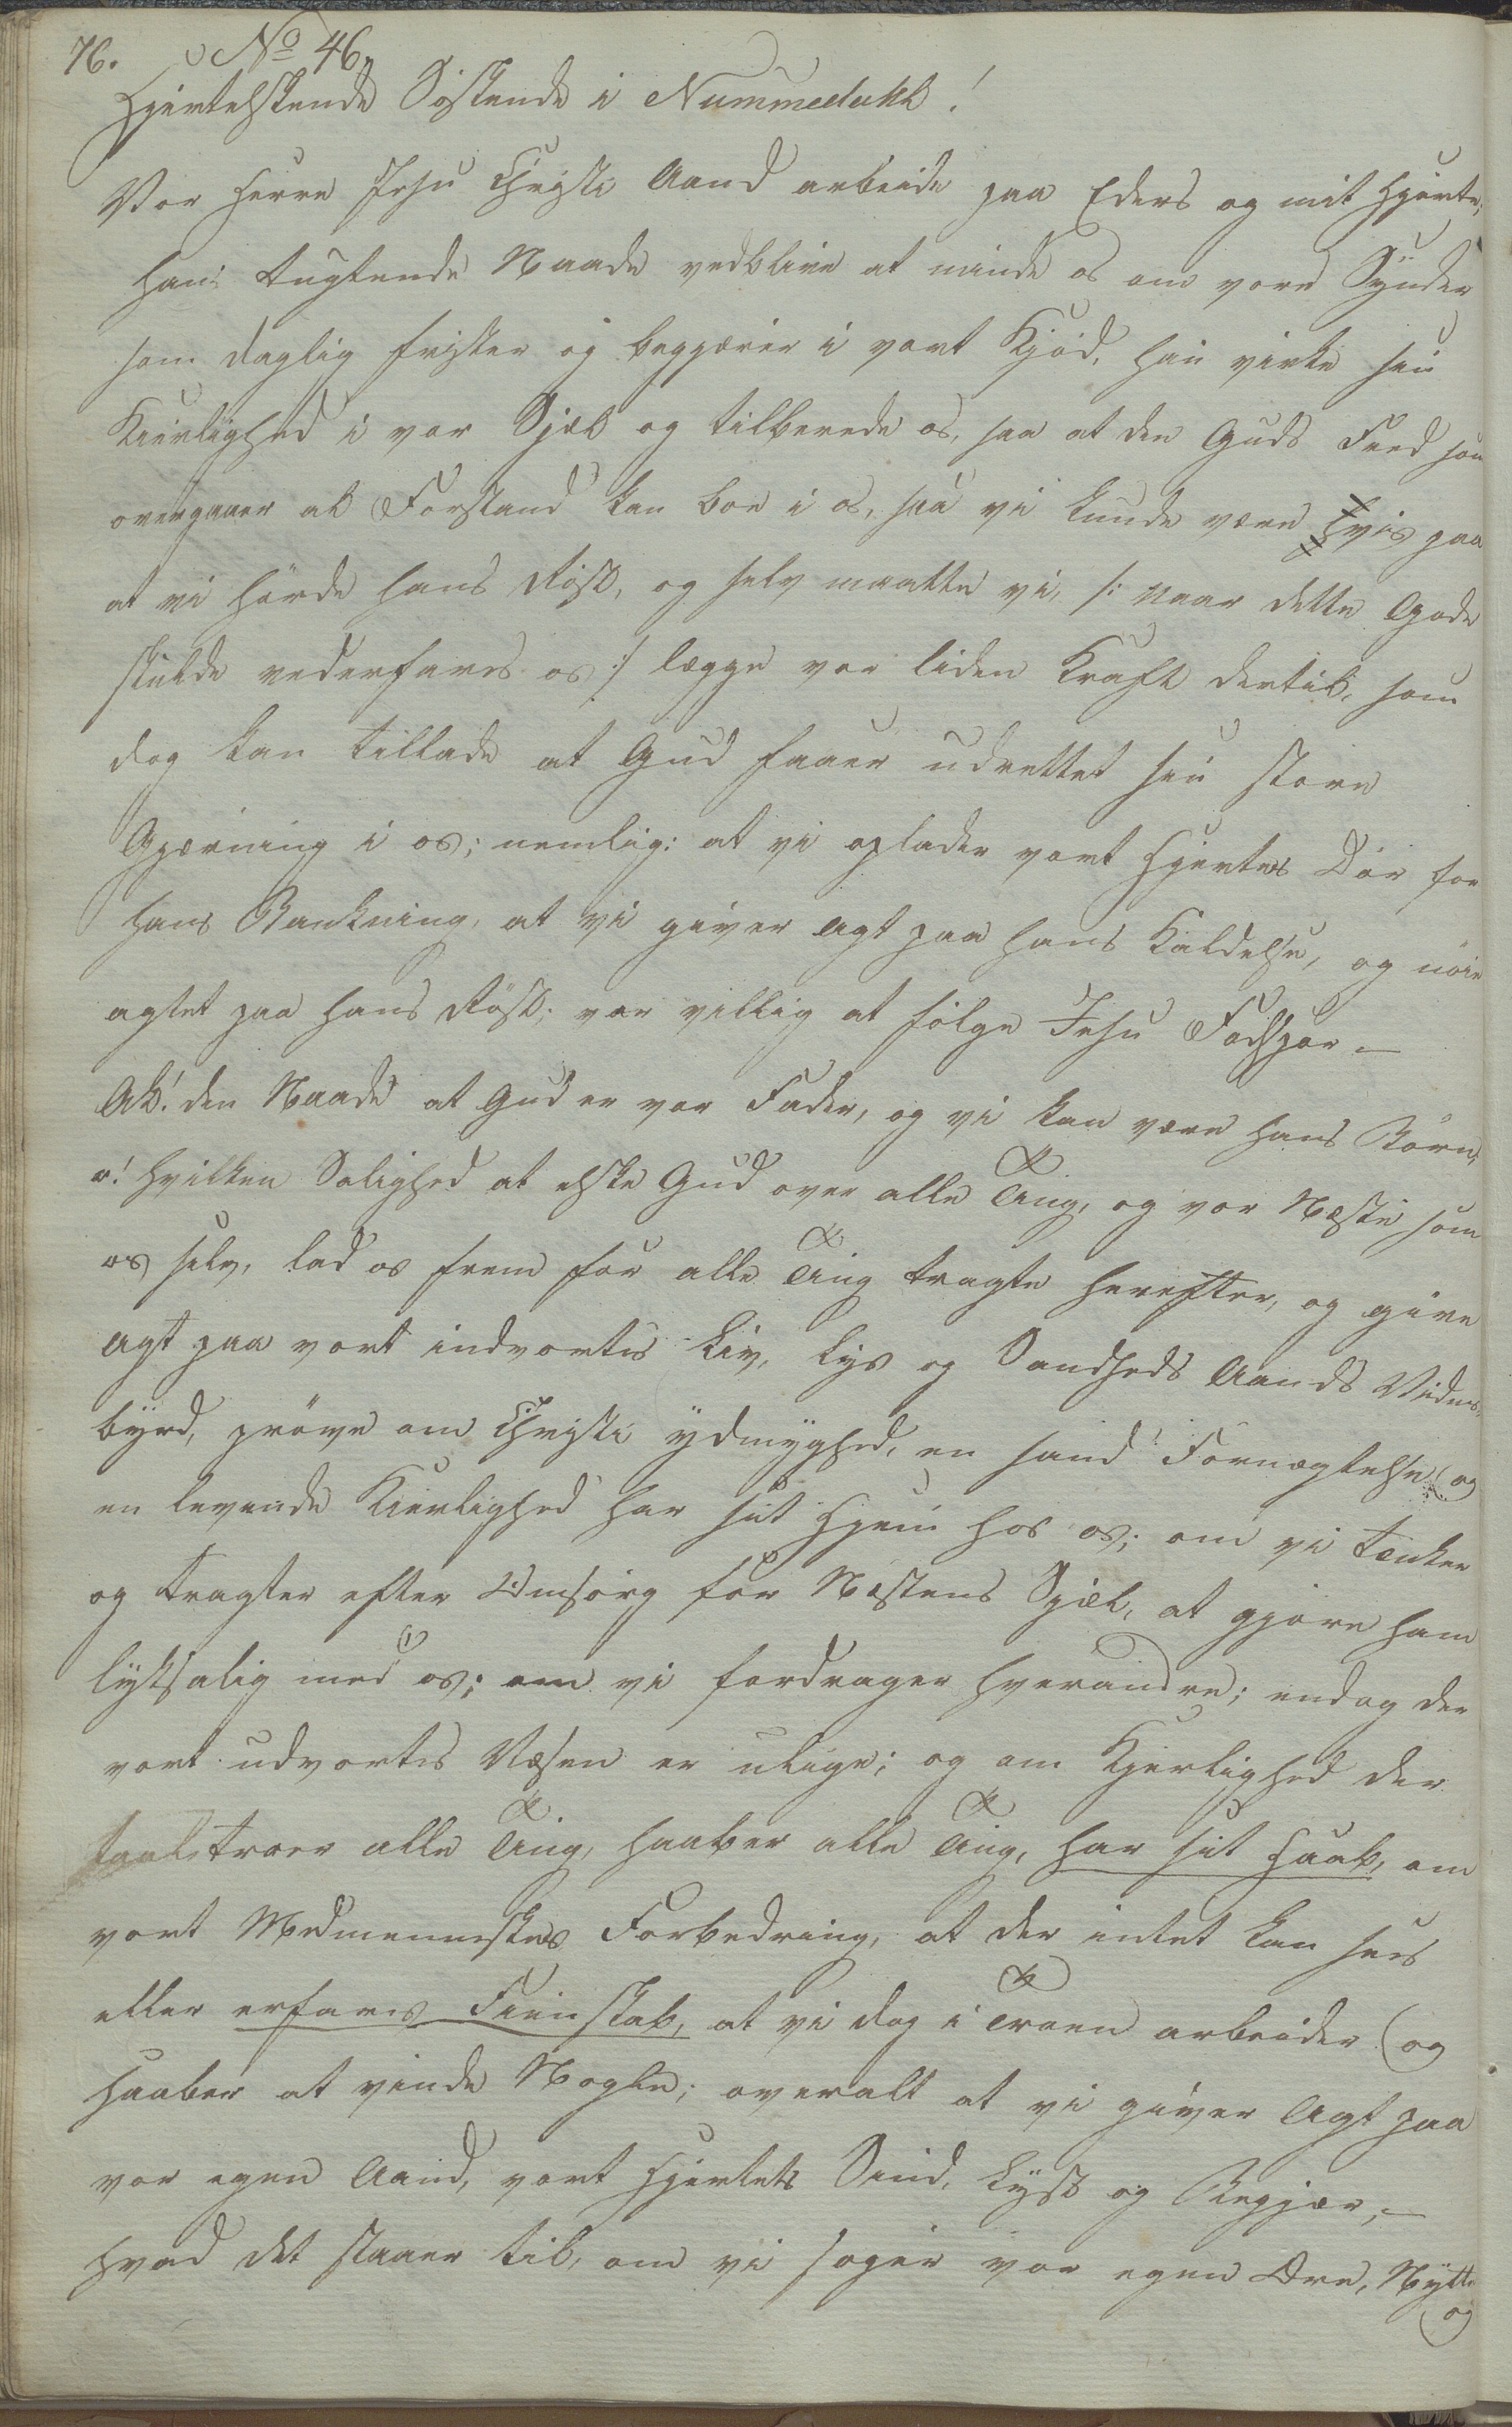 76. No 46.
Hjertelskende Söskende i Nummedahl!
Vor Herre Jesu Christi Aand arbeide paa Eders og mit Hjerte;
hans tugtende Naade vedblive at minde os om vore Synder
som daglig frister og begjærer i vort Kjöd, han virke sin
Kierlighed i vor Sjæl og tilberede os, saa at den Guds Fred som
overgaaer al Forstand kan boe i os, saa vi kunde være vis paa
at vi hörde hans Röst, og selv maatte vi, /: naar dette Gode
skulde vederfares os :/ lægge vor liden Kraft dertil, som
dog kan tillade at Gud faaer udrettet sin store
Gjærning i os; nemlig: at vi oplader vort Hjertes Dör for
hans Bankning, at vi giver agt paa hans Kaldelse, og nöie
agtet paa hans Röst; var villig at fölge Jesu Fodspor –
Ak! den Naade at Gud er vor Fader, og vi kan være hans Börn,
o! hvilken Salighed at elske Gud over alle Ting, og vor Næste som
os selv, lad os frem for alle Ting tragte herefter, og give
agt paa vort indvortes Liv, Lys og Sandheds Aands Vidnes-
byrd, pröve om Christi ydmyghed, en sand Fornægtelse og
en levende Kierlighed har sit Hjem hos os; om vi tænker
og tragter efter Omsorg for Næstens Sjæl, at gjöre ham
lyksalig med os; om vi fordrager hverandre; endog der
vort udvortes Væsen er ulige; og om Kjerlighed der
taal troer alle Ting, haaber alle Ting, har sit Haab, om
vort Medmenneskes Forbedring, at der intet kan sees
eller erfares Fiinskab, at vi dog i Troen arbeider og
haaber at vinde Nogle; overalt at vi giver Agt paa
vor egen Aand, vort Hjertets Sind, Lyst og Begjær, –
hvad det staaer til, om vi söger vor egen Ære, Nytte
og